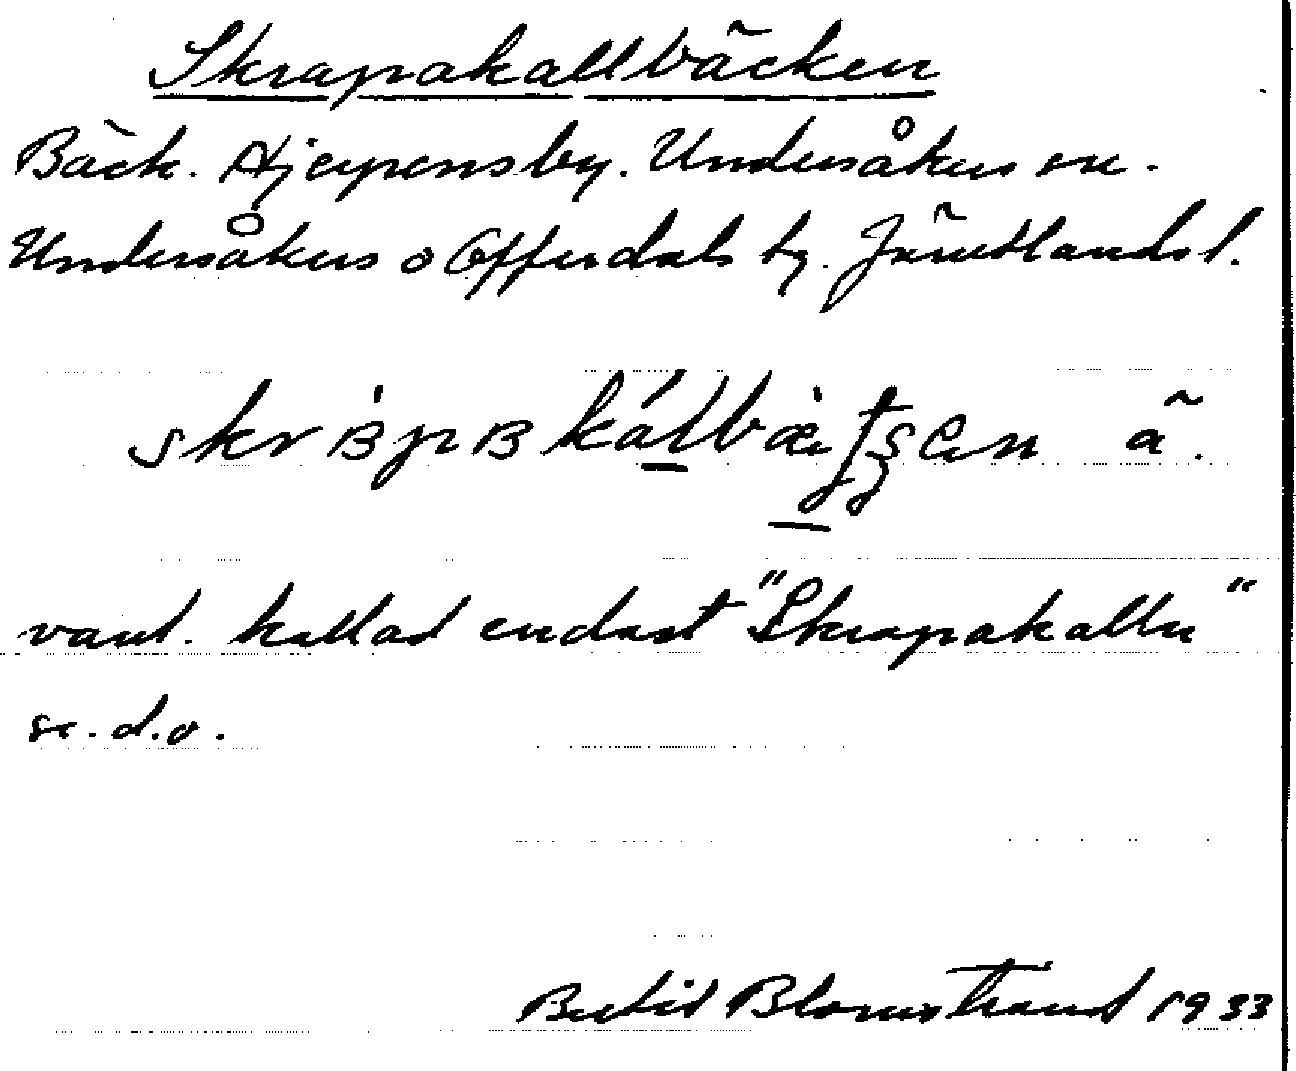 Skrapakallbäcken
Bäck. Hjerpens by. Undersåkers sn.
Undersåkers o Offerdals tg. Jämtlands l.
ã.
vanl. kallad endast "Skrapakalln"
se. d.o.
Bertil Blomstrand 1933